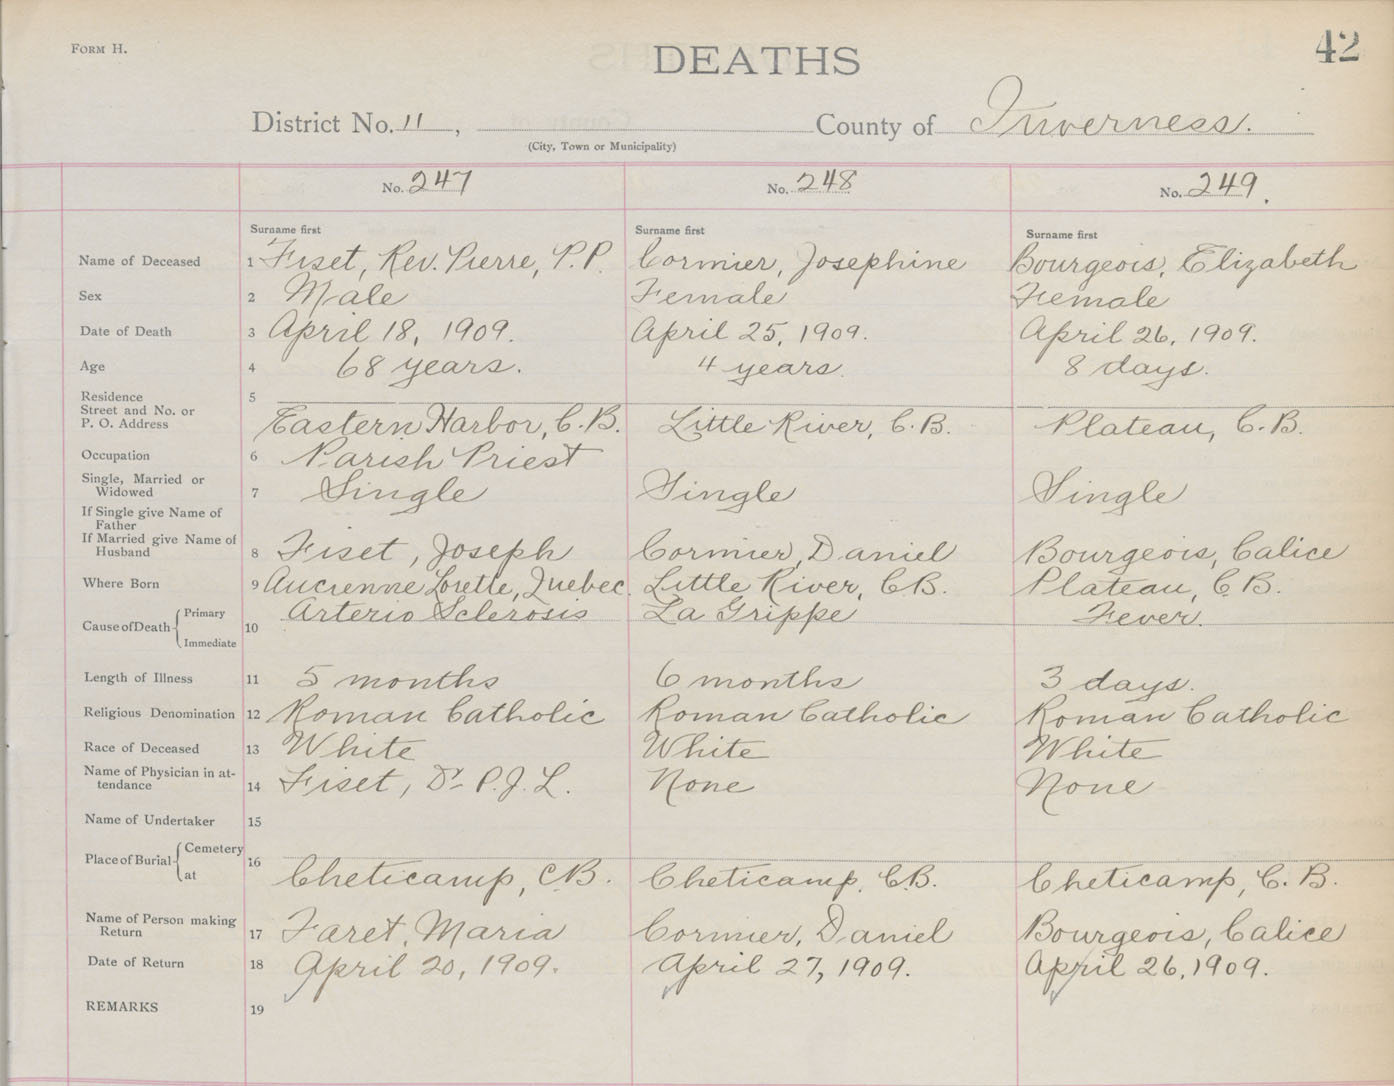 FORM H.
DEATHS
42
District No. 11, County of Inverness.
(City, Town or Municipality)
No. 247 No. 248 No. 249.
Surname first Surname first Surname first
Name of Deceased 1 Fiset, Rev. Pierre, P.P. Cormier, Josephine Bourgeois, Elizabeth
Sex 2 Male Female Female
Date of Death 3 April 18, 1909. April 25, 1909. April 26, 1909.
Age 4 68 years. 4 years. 8 days.
Residence 5
Street and No. or
P. O. Address Eastern Harbor, C.B. Little River, C.B. Plateau, C.B.
Occupation 6 Parish Priest
Single, Married or
Widowed 7 Single Single Single
If Single give Name of
Father
If Married give Name of
Husband 8 Fiset, Joseph Cormier, Daniel Bourgeois, Calice
Where Born 9 Aucienne Lorette, Quebec. Little River, C.B. Plateau, C.B.
Cause of Death Primary Arterio Sclerosis La Grippe Fever.
10
Immediate
Length of Illness 11 5 months 6 months 3 days.
Religious Denomination 12 Roman Catholic Roman Catholic Roman Catholic
Race of Deceased 13 White White White
Name of Physician in at-
tendance 14 Fiset, Dr P.J.L. None None
Name of Undertaker 15
Place of Burial Cemetery 16
at Cheticamp, C.B. Cheticamp, C.B. Cheticamp, C.B.
Name of Person making
Return 17 Faret, Maria Cormier, Daniel Bourgeois, Calice
Date of Return 18 April 20, 1909. April 27, 1909. April 26, 1909.
REMARKS 19